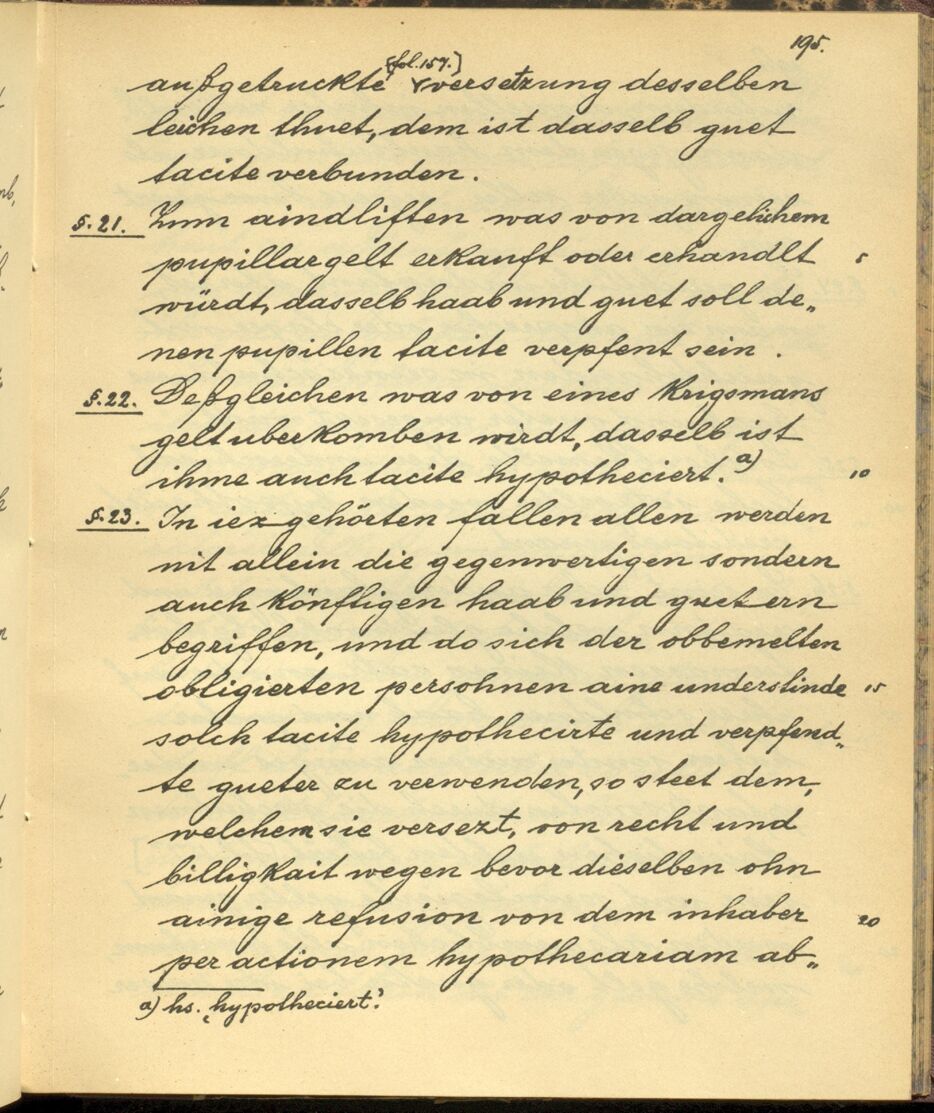 195.
[fol.157.]
außgetruckte versetzung desselben
leichen thuet, dem ist dasselb guet
tacite verbunden.
§.21. Zum aindliften was von dargelichem
pupillargelt erkauft oder erhandlt 5
würdt, dasselb haab und guet soll de„
nen pupillen tacite verpfent sein.
§.22. Deßgleichen was von eines Krigsmans
gelt uberkomben wirdt, dasselb ist
ihme auch tacite hypotheciert.a) 10
§.23. In iezgehörten fällen allen werden
nit allein die gegenwertigen sondern
auch könftigen haab und guetern
begriffen, und do sich der obbemelten
obligierten persohnen aine understinde 15
solch tacite hypothecirte und verpfend„
te gueter zu verwenden, so steet dem,
welchem sie versezt, von recht und
billigkait wegen bevor dieselben ohn
ainige refusion von dem inhaber 20
per actionem hypothecariam ab„
a) hs. „hypotheciert?